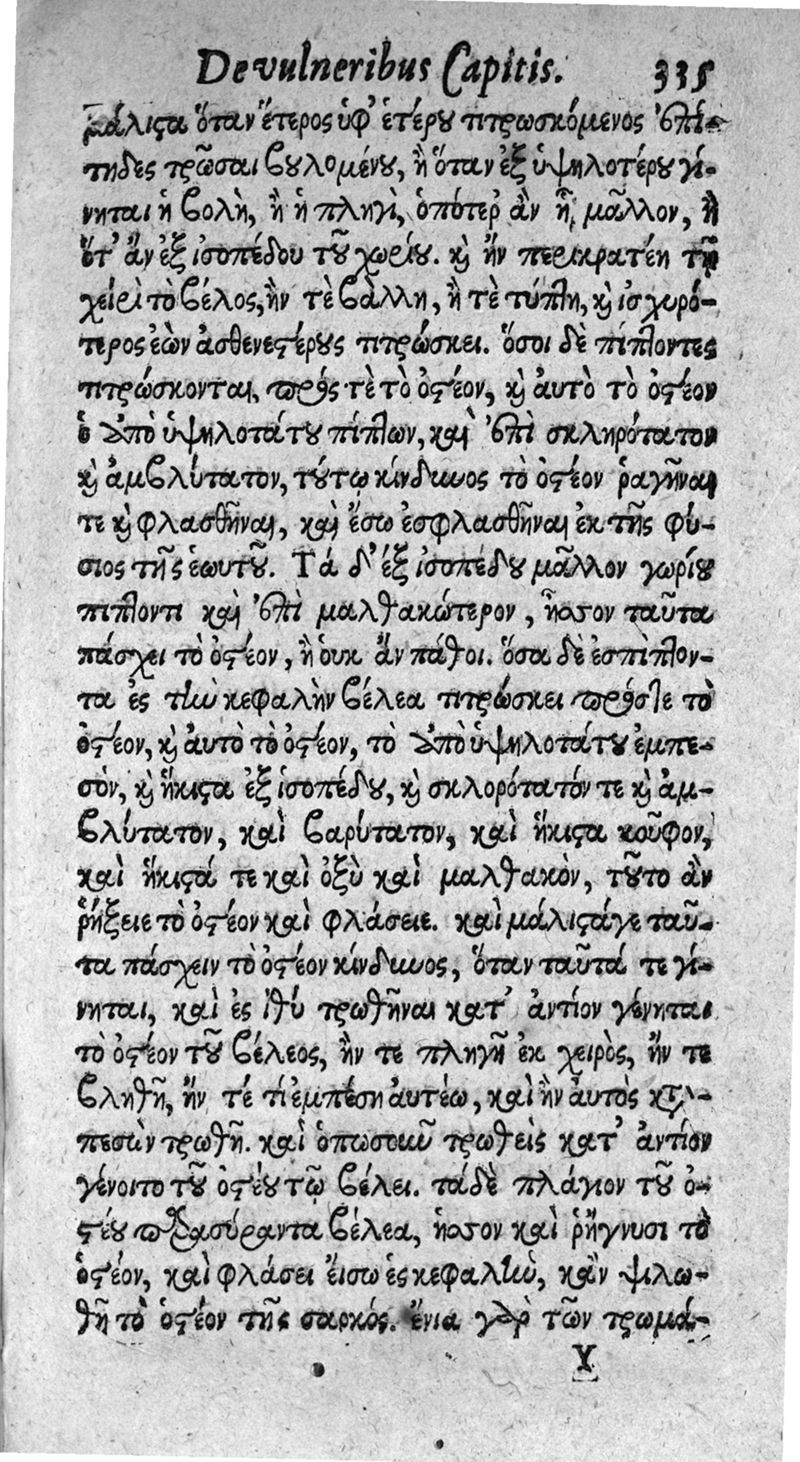 De vulneribus Capitis. 335
μάλιστα ὅταν ἕτερος ὑφ' ἑτέρου τιτρωσκόμενος ἐπί-
τηδες τρῶσαι βουλομένου, ἢ ὅταν ἐξ ὑψηλοτέρου γί-
νηται ἡ βολὴ, ἢ ἡ πληγὶ, ὁπότερ ἂν ᾖ, μᾶλλον, ἢ
ὅτ' ἂν ἐξ ἰσοπέδου τοῦ χωρίου. καὶ ἢν περικρατέη τῇ
χειρὶ τὸ βέλος, ἤν τὲ βάλλη, ἤ τὲ τύπτη, καὶ ἰσχυρό-
τερος ἐὼν ἀσθενεστέρους τιτρώσκει. ὅσοι δὲ πίπτοντες
τιτρώσκονται, πρός τὲ τὸ ὀστέον, καὶ ἀυτὸ τὸ ὀστέον
ὁ ἀπὸ ὑψηλοτάτου πίπτων, καὶ ἐπὶ σκληρότατον
καὶ ἀμβλύτατον, τούτῳ κίνδυνος τὸ ὀστέον ῥαγῆναι
τε καὶ φλασθῆναι, καὶ ἔσω ἐσφλασθῆναι ἐκ τῆς φύ-
σιος τῆς ἑωυτοῦ. Τά δ' ἐξ ἰσοπέδου μᾶλλον χωρίου
πίπτοντι καὶ ἐπὶ μαλθακώτερον, ἧσσον ταῦτα
πάσχει τὸ ὀστέον, ἢ ουκ ἂν πάθοι. ὅσα δὲ ἐσπίπτον-
τα ἐς τὴν κεφαλὴν βέλεα τιτρώσκει πρός τε τὸ
ὀστέον, καὶ ἀυτὸ τὸ ὀστέον, τὸ ἀπὸ ὑψηλοτάτου ἐμπε-
σὸν, καὶ ἥκιστα ἐξ ἰσοπέδου, καὶ σκλορότατόν τε καὶ ἀμ-
βλύτατον, καὶ βαρύτατον, καὶ ἥκιστα κοῦφον,
καὶ ἥκιστά τε καὶ ὀξὺ καὶ μαλθακὸν, τοῦτο ἂν
ῥήξειε τὸ ὀστέον καὶ φλάσειε. καὶ μάλιστάγε ταῦ-
τα πάσχειν τὸ ὀστέον κίνδυνος, ὅταν ταῦτά τε γί-
νηται, καὶ ἐς ἰθύ τρωθῆναι κατ' ἀντίον γένηται
τὸ ὀστέον τοῦ βέλεος, ἤν τε πληγῆ ἐκ χειρὸς, ἤν τε
βληθῆ, ἤν τέ τί ἐμπέση ἀυτέω, καὶ ἢν ἀυτὸς κατα-
πεσὼν τρωθῆ. καὶ ὁπωσοῦν τρωθεὶς κατ' ἀντίον
γένοιτο τοῦ ὀστέου τῷ βέλει. τάδὲ πλάγιον τοῦ ὀ-
στέου παρασύραντα βέλεα, ἧσσον καὶ ῥήγνυσι τὸ
ὀστέον, καὶ φλάσει ἔισω ἐς κεφαλὴν, κἂν ψιλω-
θῇ τὸ ὀστέον τῆς σαρκός. ἔνια γὰρ τῶν τρωμά-
Y